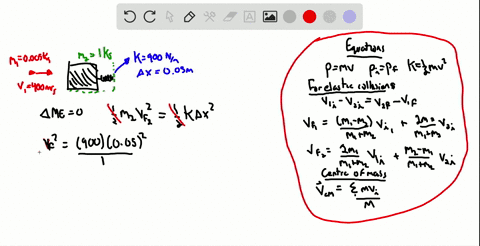 m₁=0.005kg
V₁=400m/s
m₂=1kg
K=900 N/m
Δx=0.05m
ΔME=0 ½ m₂ V_F₂² = ½ K Δx²
V_F² = (900)(0.05)²
1
Equations
p=mv p₀=p_F K=½mv²
For elastic collisions
V₁ᵢ - V₂ᵢ = V₂F - V₁F
V_F₁ = (m₁-m₂) V₁ᵢ + 2m₂ V₂ᵢ
m₁+m₂ m₁+m₂
V_F₂ = 2m₁ V₁ᵢ + m₂-m₁ V₂ᵢ
m₁+m₂ m₁+m₂
Centric of mass
V_cm = Σ mvᵢ
M